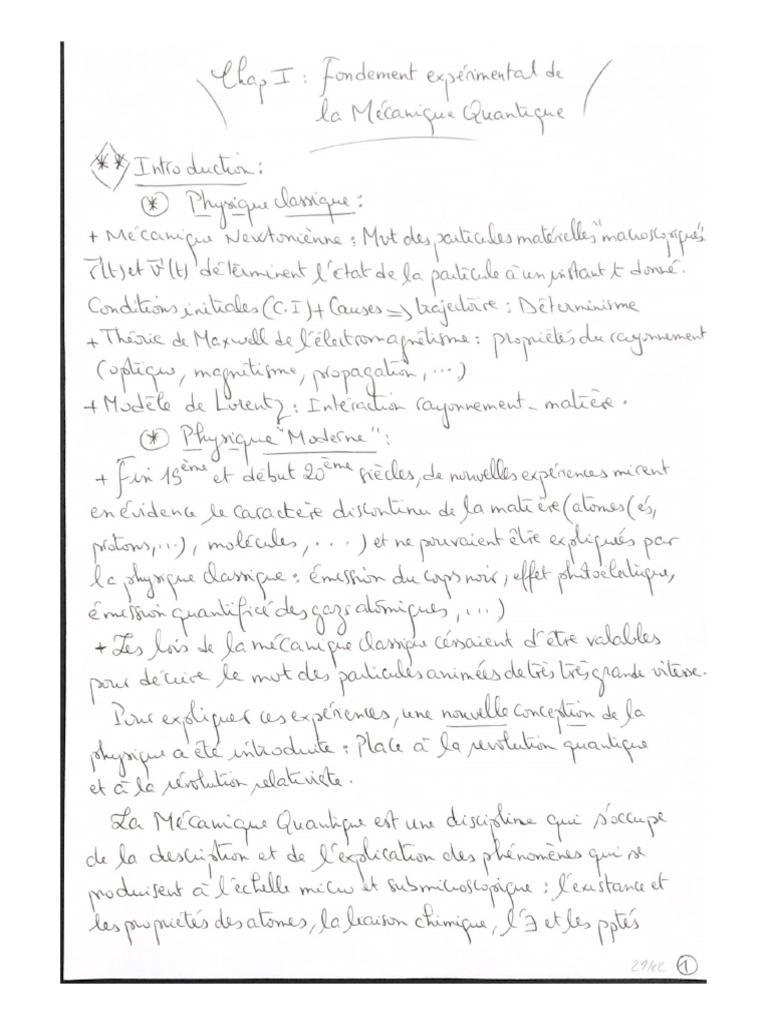 Chap I : Fondement expérimental de
la Mécanique Quantique
** Introduction :
* Physique classique :
+ Mécanique Newtonienne : Mvt des particules matérelles "macroscopiques"
r⃗(t) et v⃗(t) déterminent l'état de la particule à un instant t donné.
Conditions initiales (C.I) + Causes => trajectoire : Déterminisme
+ Théorie de Maxwell de l'électromagnétisme : propriétés du rayonnement
(optique, magnétisme, propagation, ...)
+ Modèle de Lorentz : Intéraction rayonnement - matière.
* Physique "Moderne" :
+ Fin 19ème et début 20ème siècles, de nouvelles expériences mirent
en évidence le caractère discontinu de la matière (atomes (és,
protons, ...), molécules, ...) et ne pouvaient être expliqués par
la physique classique : émission du corps noir, effet photoélectrique,
émission quantifiée des gazs atomiques, ...)
+ Les lois de la mécanique classique céssaient d'être valables
pour décrire le mvt des particules animées de très très grande vitesse.
Pour expliquer ces expériences, une nouvelle conception de la
physique a été introduite : Place à la révolution quantique
et à la révolution relativiste.
La Mécanique Quantique est une discipline qui s'occupe
de la description et de l'explication des phénomènes qui se
produisent à l'échelle micro et submicroscopique : l'existance et
les propriétés des atomes, la liaison chimique, l'∃ et les pptés
1